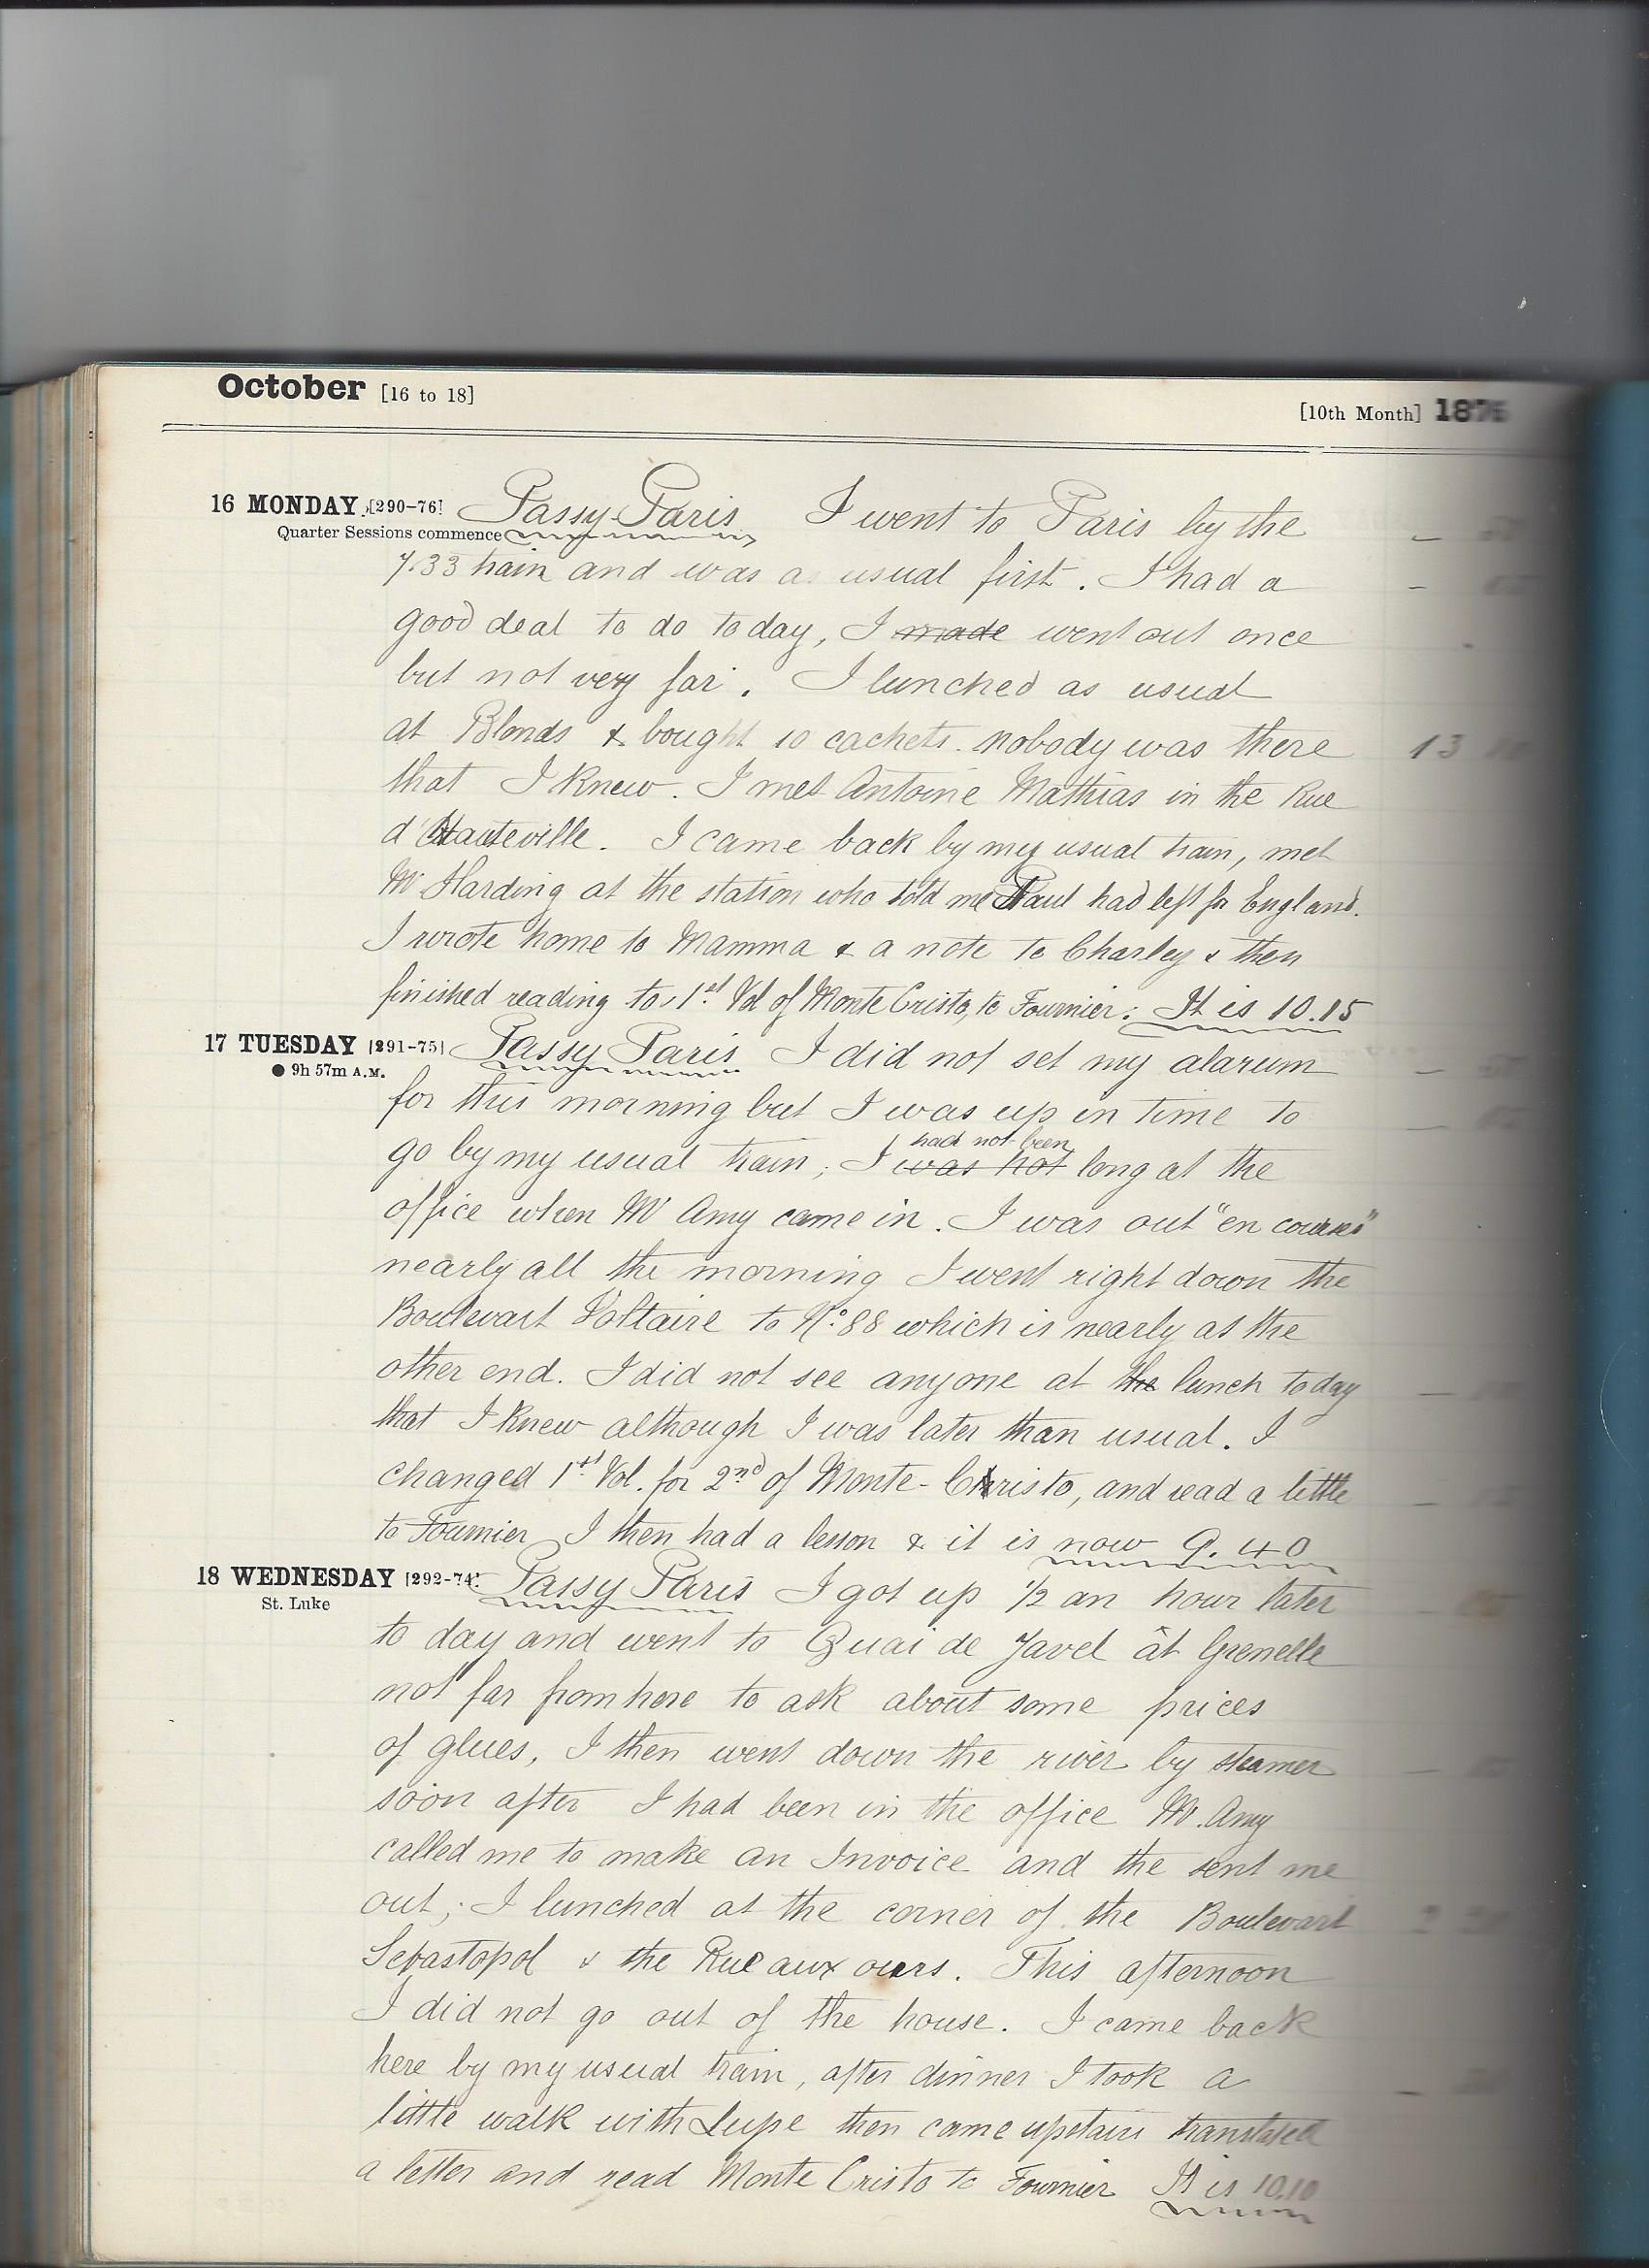 October [16 to 18]
[10th Month] 1876
16 MONDAY [290-76] Passy Paris I went to Paris by the
Quarter Sessions commence
7.33 train and was as usual first. I had a
good deal to do today, I made went out once
but not very far. I lunched as usual
at Blonds & bought 10 cachets. nobody was there 13
that I knew. I met Antoine Mathias in the Rue
d'Hauteville. I came back by my usual train, met
Mr Harding at the station who told me Paul had left for England.
I wrote home to Mamma & a note to Charley & then
finished reading to 1st Vol of Monte Cristo, to Fournier. It is 10.15
17 TUESDAY [291-75] Passy Paris I did not set my alarum
● 9h 57m A.M.
for this morning but I was up in time to
had not been
go by my usual train; I was not long at the
office when Mr Amy came in. I was out "en courses"
nearly all the morning I went right down the
Boulevart Voltaire to No. 88 which is nearly at the
other end. I did not see anyone at the lunch today
that I knew although I was later than usual. I
changed 1st Vol. for 2nd of Monte-Christo, and read a little
to Fournier I then had a lesson & it is now 9.40
18 WEDNESDAY [292-74] Passy Paris I got up 1/2 an hour later
St. Luke
to day and went to Quai de Javel ât Grenelle
not far from here to ask about some prices
of glues, I then went down the river by steamer
soon after I had been in the office Mr. Amy
called me to make an Invoice and the sent me
out; I lunched at the corner of the Boulevart
Sebastopol & the Rue aux ours. This afternoon
I did not go out of the house. I came back
here by my usual train, after dinner I took a
little walk with Lupe then came upstairs translated
a letter and read Monte Cristo to Fournier It is 10.10